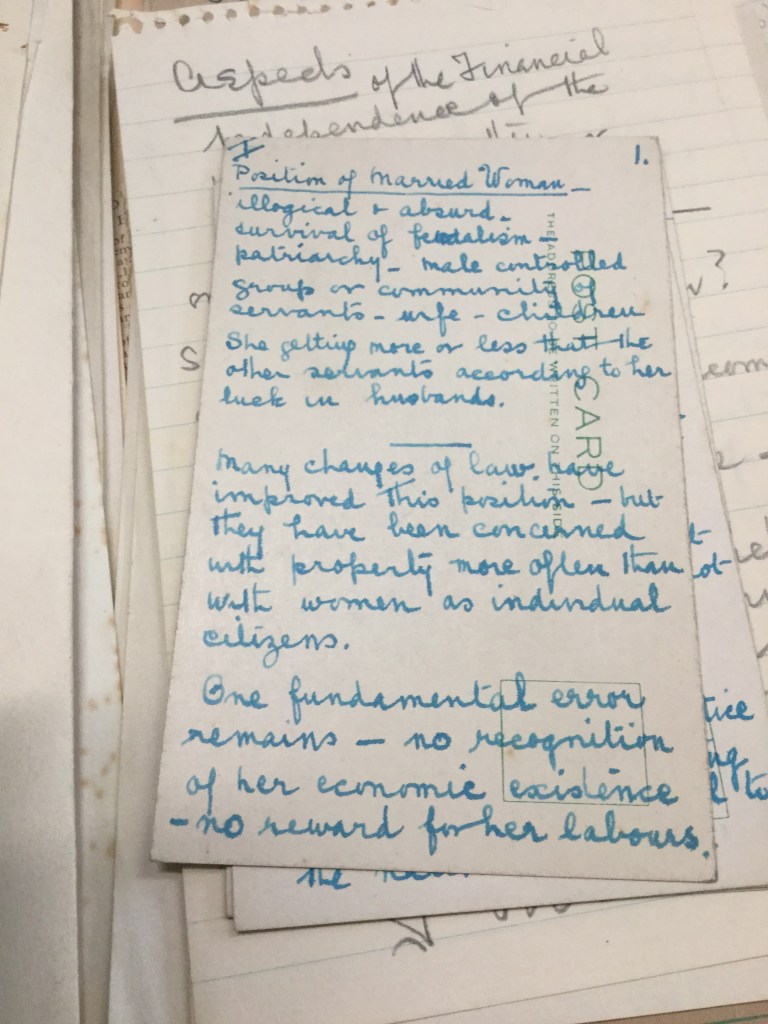 Aspects of the Financial
Independence of the
I
1.
Position of Married Woman —
illogical & absurd.
survival of feudalism —
patriarchy — male controlled
group or community of
servants - wife - children
She getting more or less that the
other servants according to her
luck in husbands.
Many changes of law have
improved this position — but
they have been concerned
with property more often than
with women as individual
citizens.
One fundamental error
remains — no recognition
of her economic existence
— no reward for her labours.
POST CARD
THE ADDRESS TO BE WRITTEN ON THIS SIDE
the